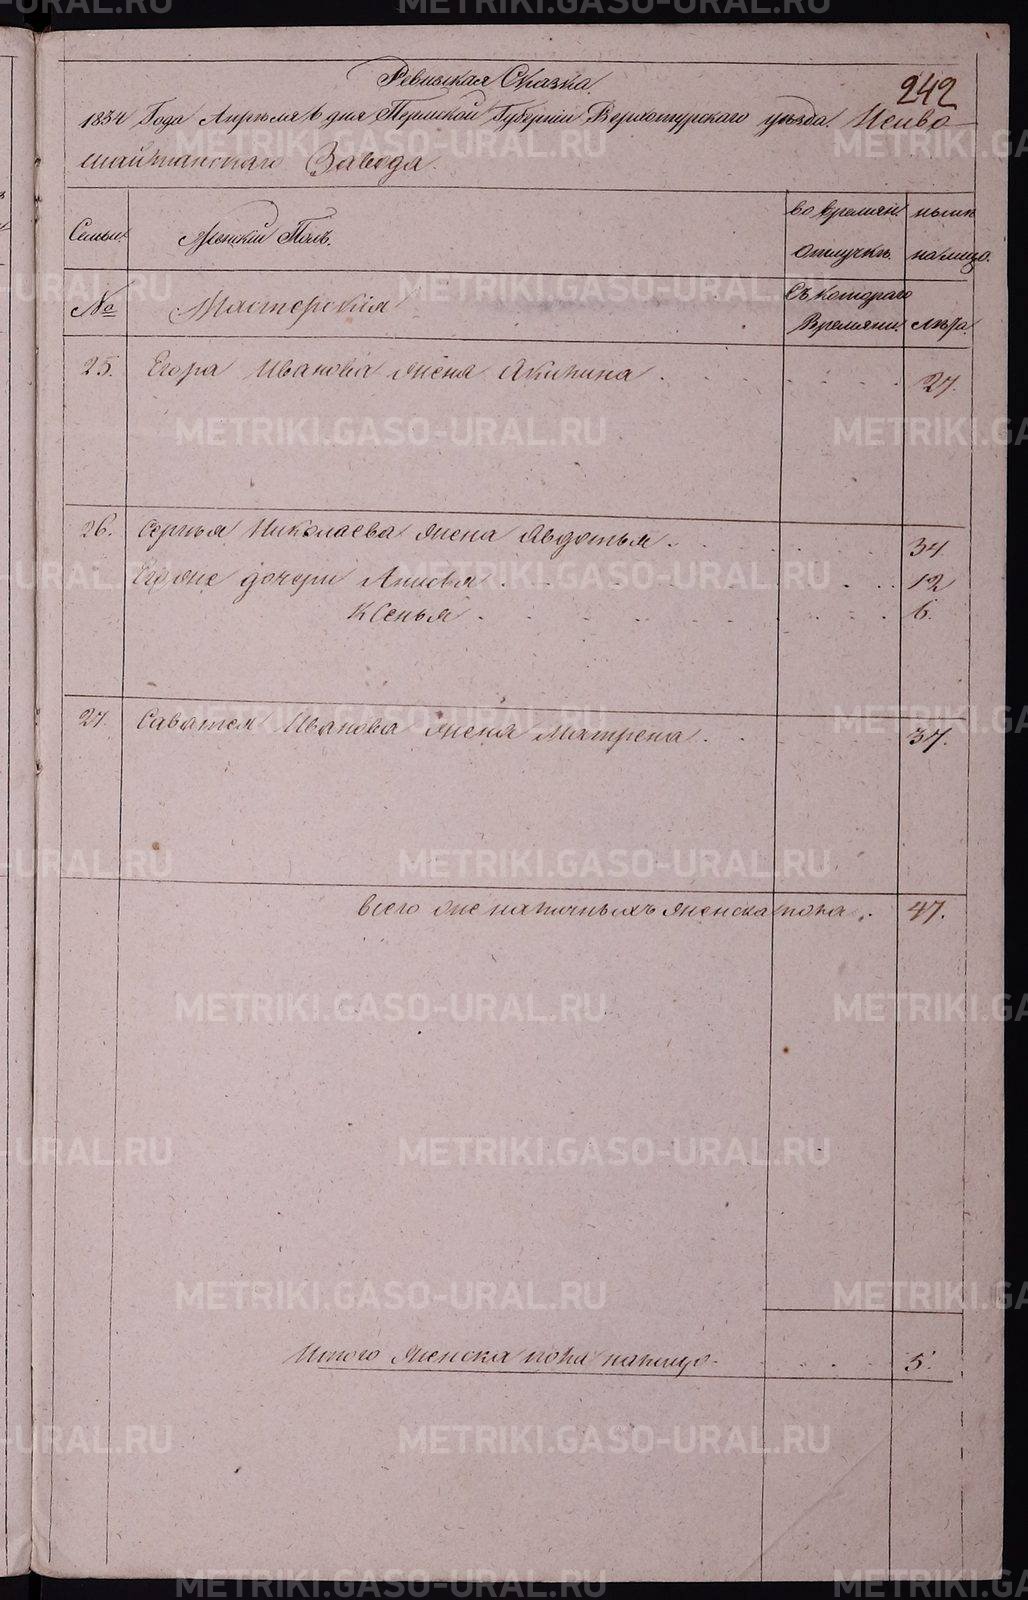 Ревизская Сказка.
242
1834 Года Апреля 6 дня Пермской Губернии Верхотурского уезда. Нейво
шайтанского Завода.
Семьи. Женский Полъ. во времян. отлучке. ныне на лицо.
№ Мастерския Съ котораго Времяни. лета.
25. Егора Иванова жена Акилина . 27.
26. Сергея Николаева жена Авдотья . 34
Его же дочери Анисья . 12
Ксенья . 6.
27. Саватея Иванова жена Матрена . 37.
всего же наличныхъ женска пола . 47.
Итого женска пола налицо . 5.
METRIKI.GASO-URAL.RU